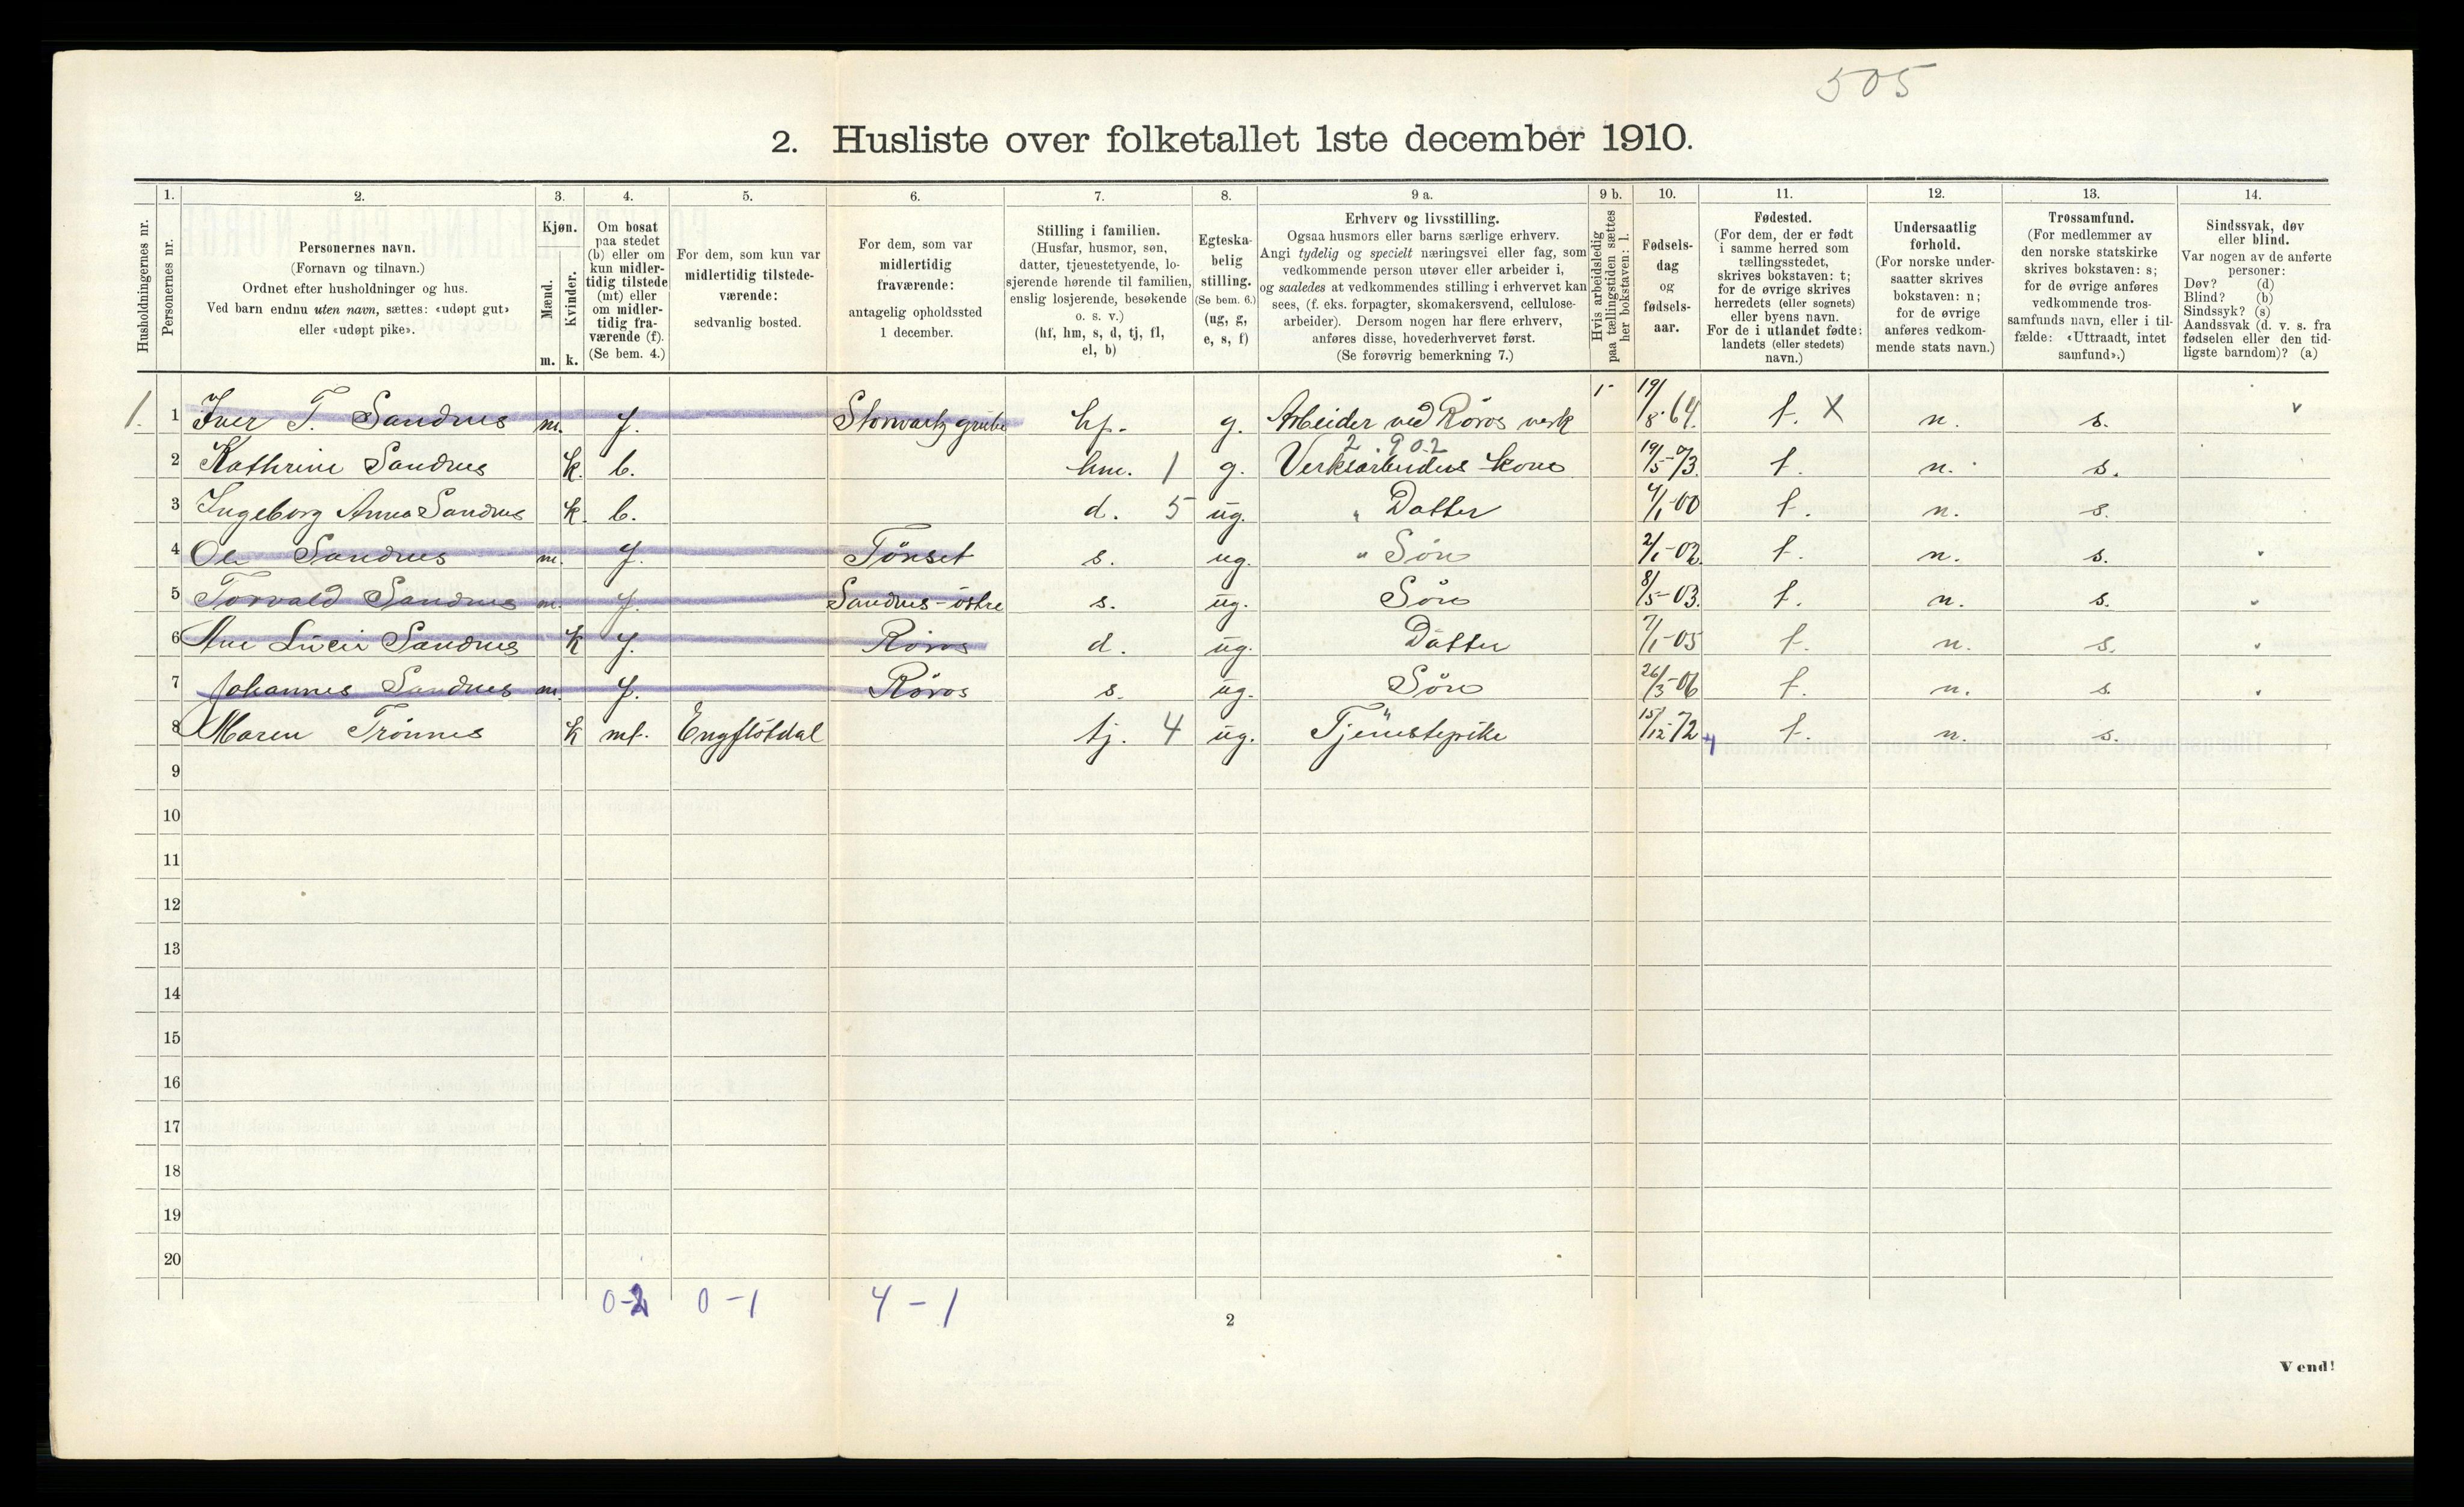 505
2. Husliste over folketallet 1ste december 1910.
Husholdningernes nr.
1.
Personernes nr.
2.
Personernes navn.
(Fornavn og tilnavn.)
Ordnet efter husholdninger og hus.
Ved barn endnu uten navn, sættes: «udøpt gut»
eller «udøpt pike».
3.
Kjøn.
Mænd.
Kvinder.
m. k.
4.
Om bosat
paa stedet
(b) eller om
kun midler-
tidig tilstede
(mt) eller
om midler-
tidig fra-
værende (f).
(Se bem. 4.)
5.
For dem, som kun var
midlertidig tilstede-
værende:
sedvanlig bosted.
6.
For dem, som var
midlertidig
fraværende:
antagelig opholdssted
1 december.
7.
Stilling i familien.
(Husfar, husmor, søn,
datter, tjenestetyende, lo-
sjerende hørende til familien,
enslig losjerende, besøkende
o. s. v.)
(hf, hm, s, d, tj, fl,
el, b)
8.
Egteska-
belig
stilling.
(Se bem. 6.)
(ug, g,
e, s, f)
9 a.
Erhverv og livsstilling.
Ogsaa husmors eller barns særlige erhverv.
Angi tydelig og specielt næringsvei eller fag, som
vedkommende person utøver eller arbeider i,
og saaledes at vedkommendes stilling i erhvervet kan
sees, (f. eks. forpagter, skomakersvend, cellulose-
arbeider). Dersom nogen har flere erhverv,
anføres disse, hovederhvervet først.
(Se forøvrig bemerkning 7.)
9 b.
Hvis arbeidsledig
paa tællingstiden sættes
her bokstaven: l.
10.
Fødsels-
dag
og
fødsels-
aar.
11.
Fødested.
(For dem, der er født
i samme herred som
tællingsstedet,
skrives bokstaven: t;
for de øvrige skrives
herredets (eller sognets)
eller byens navn.
For de i utlandet fødte:
landets (eller stedets)
navn.)
12.
Undersaatlig
forhold.
(For norske under-
saatter skrives
bokstaven: n;
for de øvrige
anføres vedkom-
mende stats navn.)
13.
Trossamfund.
(For medlemmer av
den norske statskirke
skrives bokstaven: s;
for de øvrige anføres
vedkommende tros-
samfunds navn, eller i til-
fælde: «Uttraadt, intet
samfund».)
14.
Sindssvak, døv
eller blind.
Var nogen av de anførte
personer:
Døv? (d)
Blind? (b)
Sindssyk? (s)
Aandssvak (d. v. s. fra
fødselen eller den tid-
ligste barndom)? (a)
1. 1 Iver T. Sandnes m. f. Storwartz grube hf. g. Arbeider ved Röros verk 19/8-64. t. X n. s. v
2 902
2 Kathrine Sandnes k. b. hm. 1 g. Verksarbeiders kone 19/5-73. t. n. s.
3 Ingeborg Anna Sandnes k. b. d. 5 ug. " Datter 4/1-00 t. n. s.
4 Ole Sandnes m. f. Tönset s. ug. " Sön 2/1-02. t. n. s.
5 Torvald Sandnes m. f. Sandnes-östre s. ug. Sön 8/5-03. t. n. s.
6 Ane Lucie Sandnes k f. Röros d. ug. Datter 7/1-05 t. n. s.
7 Johannes Sandnes m. f. Röros s. ug. Sön 26/3-06 t. n. s.
8 Maren Trönnes k mt. Engflötdal tj. 4 ug. Tjenestepike 15/12-72 4 t. n. s.
9
10
11
12
13
14
15
16
17
18
19
20
0-2 0-1 4-1
2
Vend!